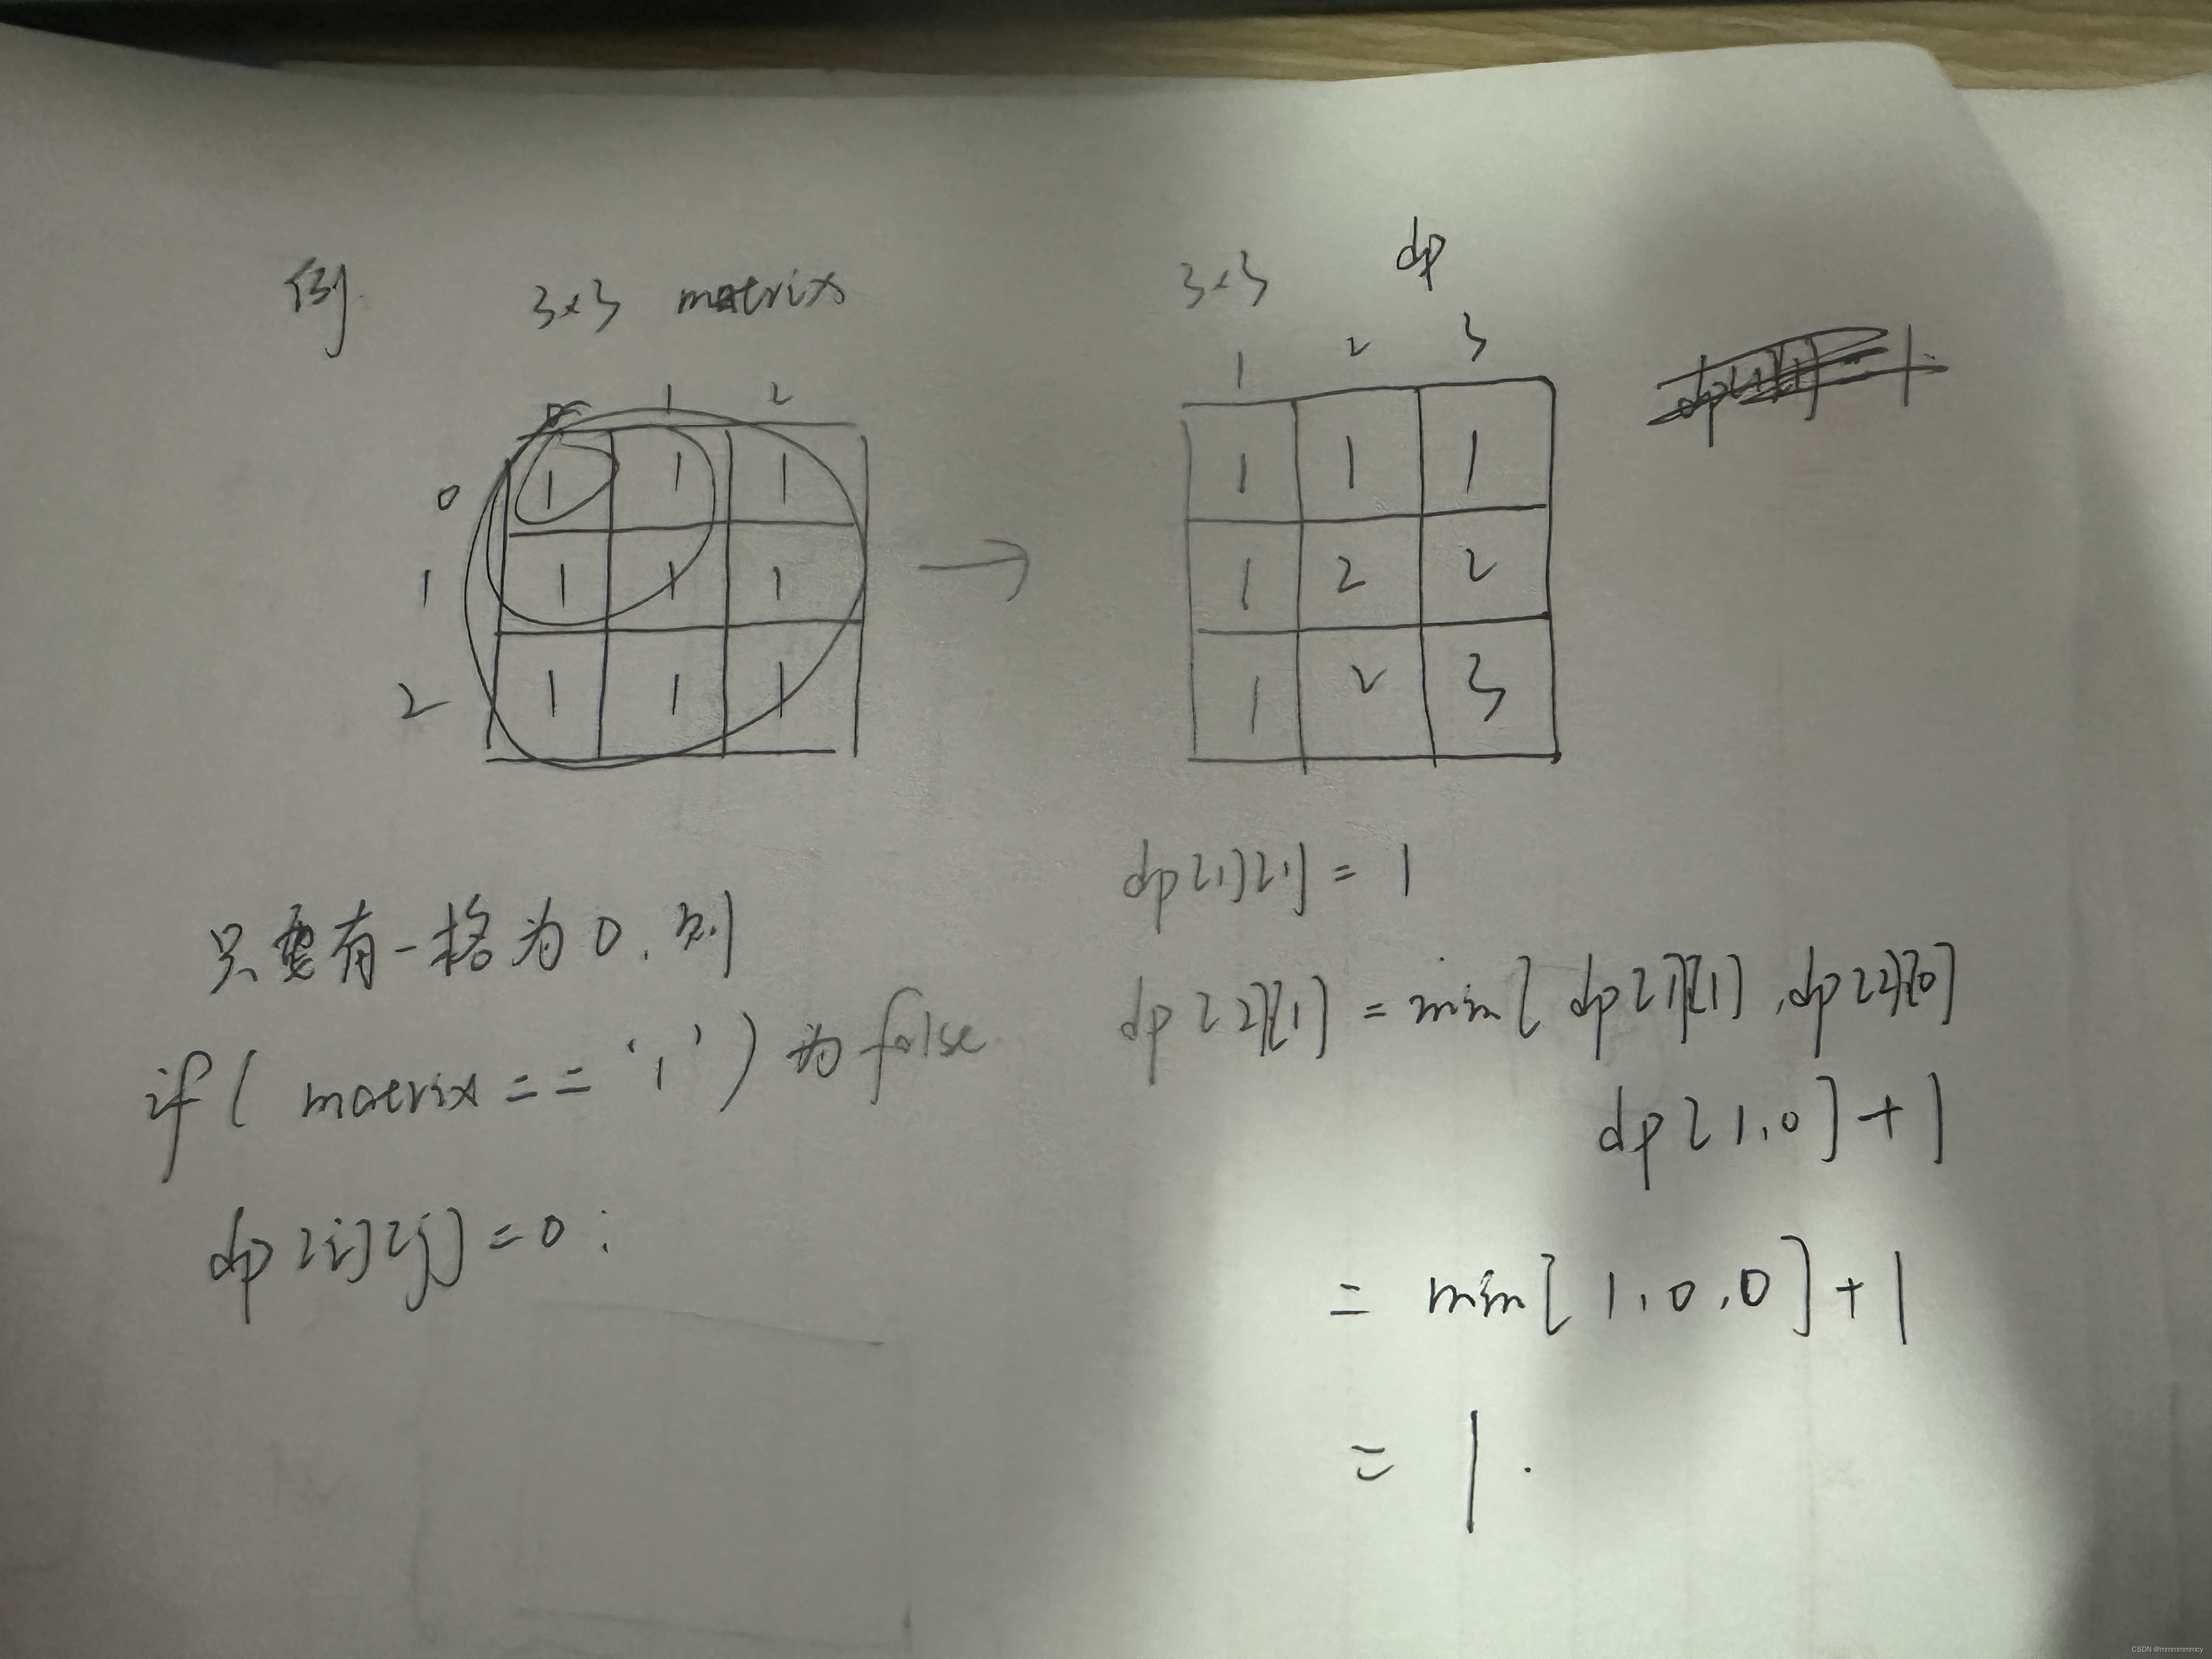 例. 3×3 matrix
0 1 2
0 1 1 1
1 1 1 1
2 1 1 1
3×3 dp
1 2 3
1 1 1
1 2 2
1 2 3
只要有一格为0.则
if( matrix == '1' ) 为 false
dp[i][j]=0;
dp[1][1] = 1
dp[2][1] = min[ dp[1][1] , dp[2][0]
dp[1,0] + 1
= min[ 1,0,0 ] + 1
= 1.
CSDN @mmmmmmcy